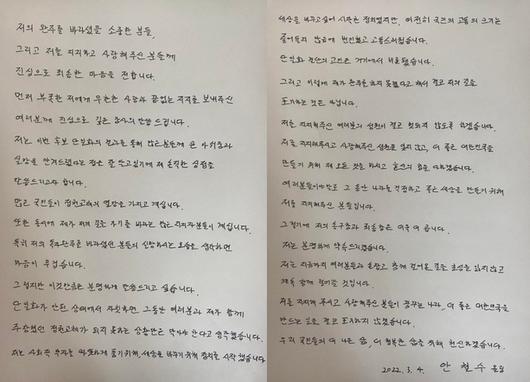 저의 완주를 바라셨을 소중한 분들,
그리고 저를 지지하고 사랑해주신 분들께
진심으로 죄송한 마음을 전합니다.
먼저 부족한 저에게 무한한 사랑과 끝없는 지지를 보내주신
여러분께 진심으로 깊은 감사의 말씀 드립니다.
저는 이번 후보 단일화의 결과를 통해 많은 분들께 큰 아쉬움과
실망을 안겨드렸다는 점은 잘 알고 있기에 제 솔직한 심정을
말씀드리고자 합니다.
많은 국민들이 정권교체의 열망을 가지고 계십니다.
또한 동시에 제가 저의 길을 가기를 바라는 많은 지지자분들이 계십니다.
특히 저의 독자완주를 바라셨던 분들의 실망하시는 모습을 생각하면
마음이 무겁습니다.
그렇지만 이것만큼은 분명하게 말씀드리고 싶습니다.
단일화가 안 된 상태에서 자칫하면 그동안 여러분과 제가 함께
주장했던 정권교체가 되지 못하는 상황만은 막아야 한다고 생각했습니다.
저는 사회적 부자를 따뜻하게 품기 위해, 세상을 바꾸기 위해 정치를 시작했습니다.
세상을 바꾸고 싶어 시작한 정치였지만, 여전히 국민의 고통의 크기는
줄어들지 않음에 번민했고 고통스러웠습니다.
단일화 결단의 고뇌는 거기에서 비롯됐습니다.
그리고 이렇게 제가 완주를 하지 못했다고 해서 결코 저의 길을
포기하는 것은 아닙니다.
저를 지지해주신 여러분의 성원이 결코 헛되지 않도록 하겠습니다.
저를 지지해주시고 사랑해주신 성원을 잊지 않고, 더 좋은 대한민국을
만들기 위해 제 모든 것을 바치고 혼신의 힘을 다하겠습니다.
여러분들이야말로 그 동안 나라를 걱정하고 좋은 세상을 만들기 위해
저를 지지해주신 분들입니다.
그렇기에 저의 송구함과 죄송함은 더욱 더 큽니다.
저는 분명하게 약속드리겠습니다.
저는 지금까지 여러분들과 손잡고 함께 걸어온 길을 소중히 잊지 않고
계속 함께 걸어갈 것입니다.
저를 지지해 주시고 사랑해주신 분들이 꿈꾸는 나라, 더 좋은 대한민국을
만드는 길을 결코 포기하지 않겠습니다.
우리 국민들의 더 나은 삶, 더 행복한 삶을 위해 헌신하겠습니다.
2022. 3. 4. 안철수 올림